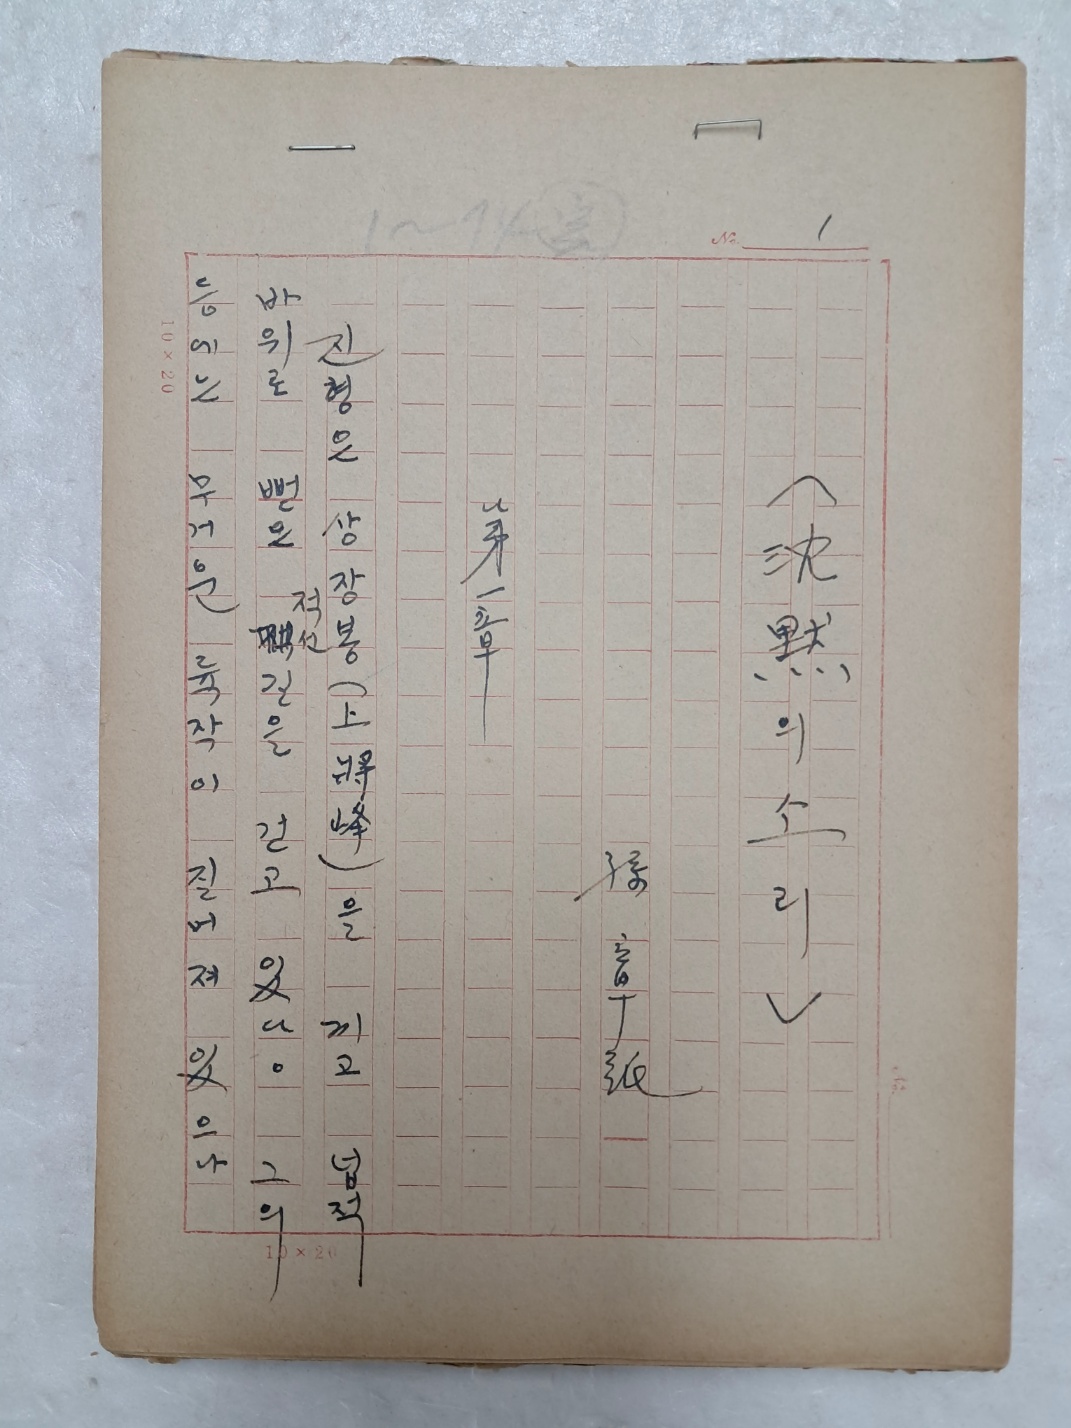 No. 1
<沈默의 소리>
孫章純
第一章
진형은 상장봉(上將峰)을 끼고 넙적
바위로 뻗은 직선길을 걷고 있다. 그의
등에는 무거운 륙작이 짊어져 있으나
10×20
10×20